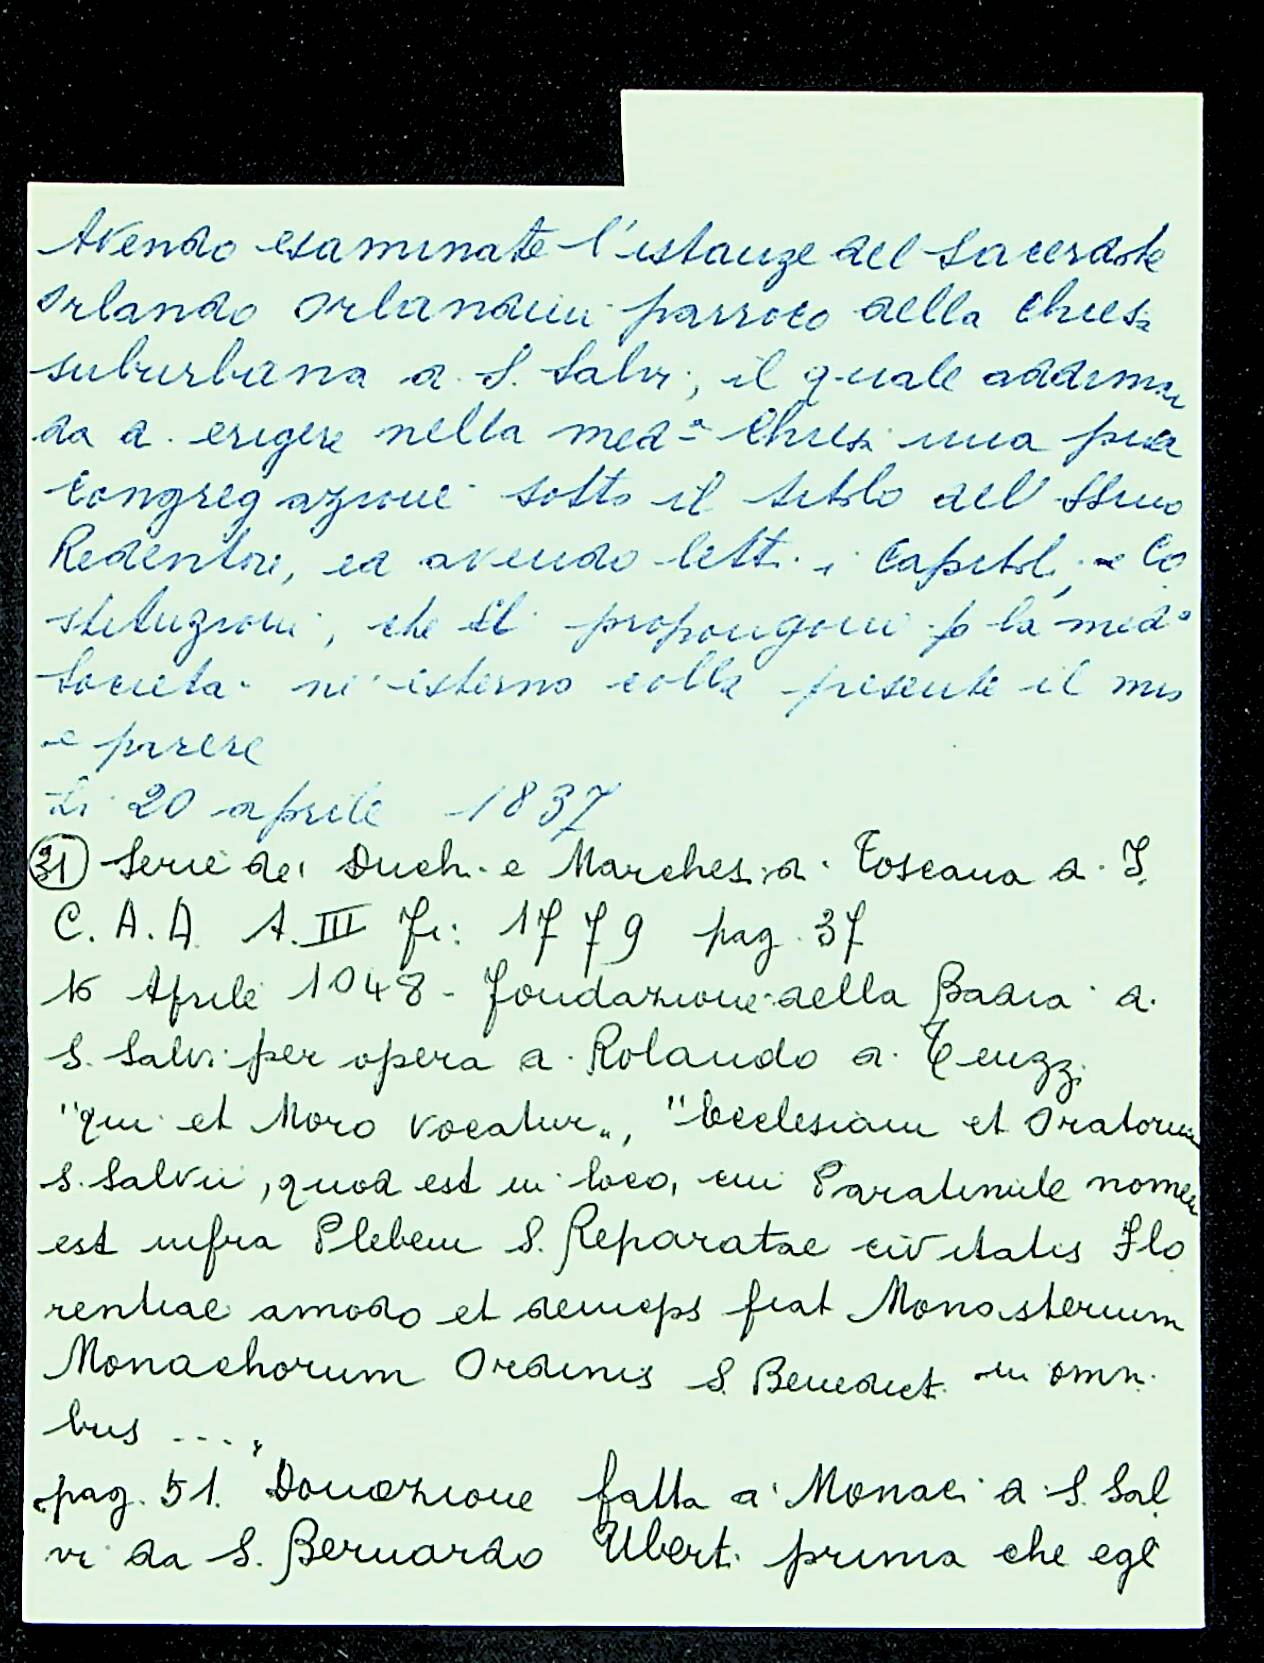 Avendo esaminate l'istanze del Sacerdote
Orlando Orlandini parroco della Chiesa
suburbana di S. Salvi, il quale addiman
da di erigere nella med.ª Chiesa una pia
Congregazione sotto il titolo del SSmo
Redentore, ed avendo letti i Capitoli, e Co
stituzioni, che si propongoni p la med.ª
Società ni esterno colla presente il mio
e parere
Li 20 aprile 1837
(31) Serie dei Duchi e Marchesi di Toscana di J.
C. A. A. A. III Fi: 1779 pag. 37
16 Aprile 1048 - Fondazione della Badia di
S. Salvi per opera di Rolando di Teuzzi
"qui et Moro vocatur", "Ecclesiam et Oratorium
S. Salvii, quod est in loco, cui Paratinule nomen
est infra Plebem S. Reparatae civitatis Flo
rentiae amodo et deinceps fiat Monasterium
Monachorum Ordinis S. Benedicti in omni
bus ....,
pag. 51. Donazione fatta ai Monaci di S. Sal
vi da S. Bernardo Uberti prima che egli